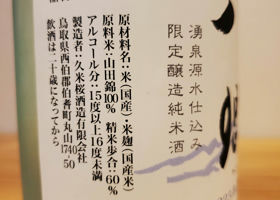 湧泉源水仕込み
限定醸造純米酒
原材料名:米(国産)・米麹(国産米)
原料米:山田錦100% 精米歩合:60%
アルコール分:15度以上16度未満
製造者:久米桜酒造有限会社
鳥取県西伯郡伯耆町丸山1740-50
飲酒は二十歳になってから。